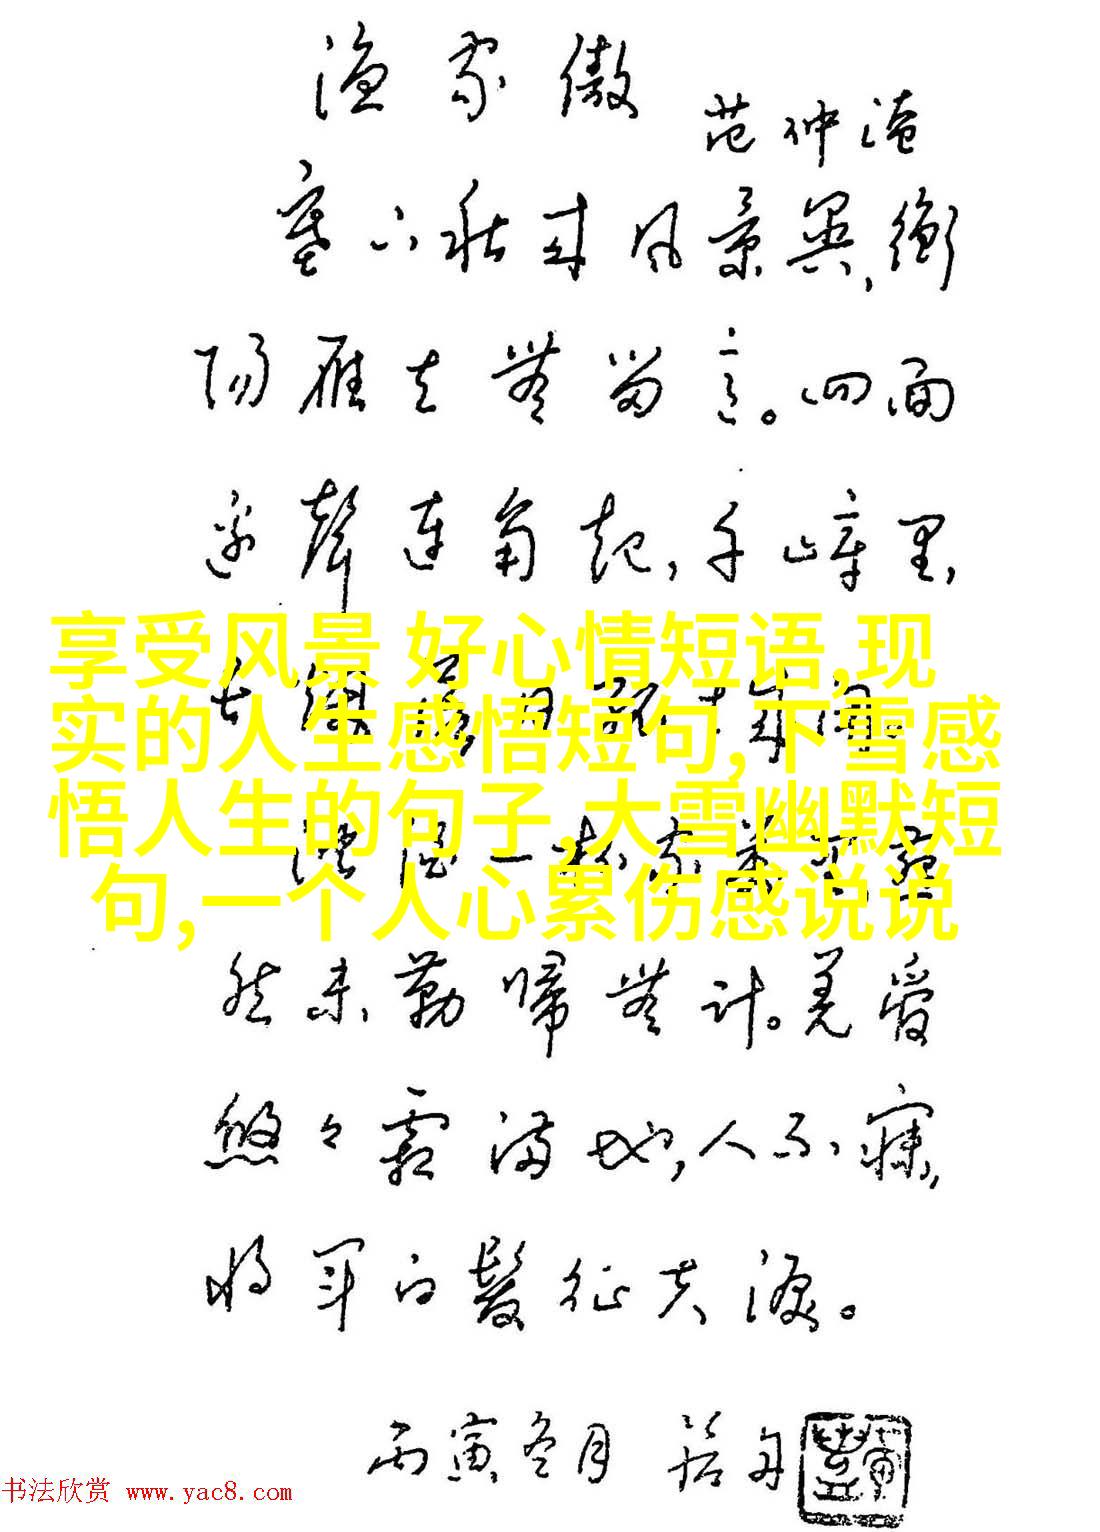 渔家傲
范仲淹
塞下秋来风景異,衡
阳雁去無留意。四面
边聲连角起,千嶂里,
享受风景 好心情短语,现
长烟落日孤城闭。
实的人生感悟短句,下雪感
悟人生的句子,大雪幽默短
浊酒一杯家萬里,燕
句,一个人心累伤感说说
然未勒歸無计。羌管
悠々霜满地,人不寐,
将军白髮征夫泪。
丙寅冬月
书法欣赏 www.yac8.com